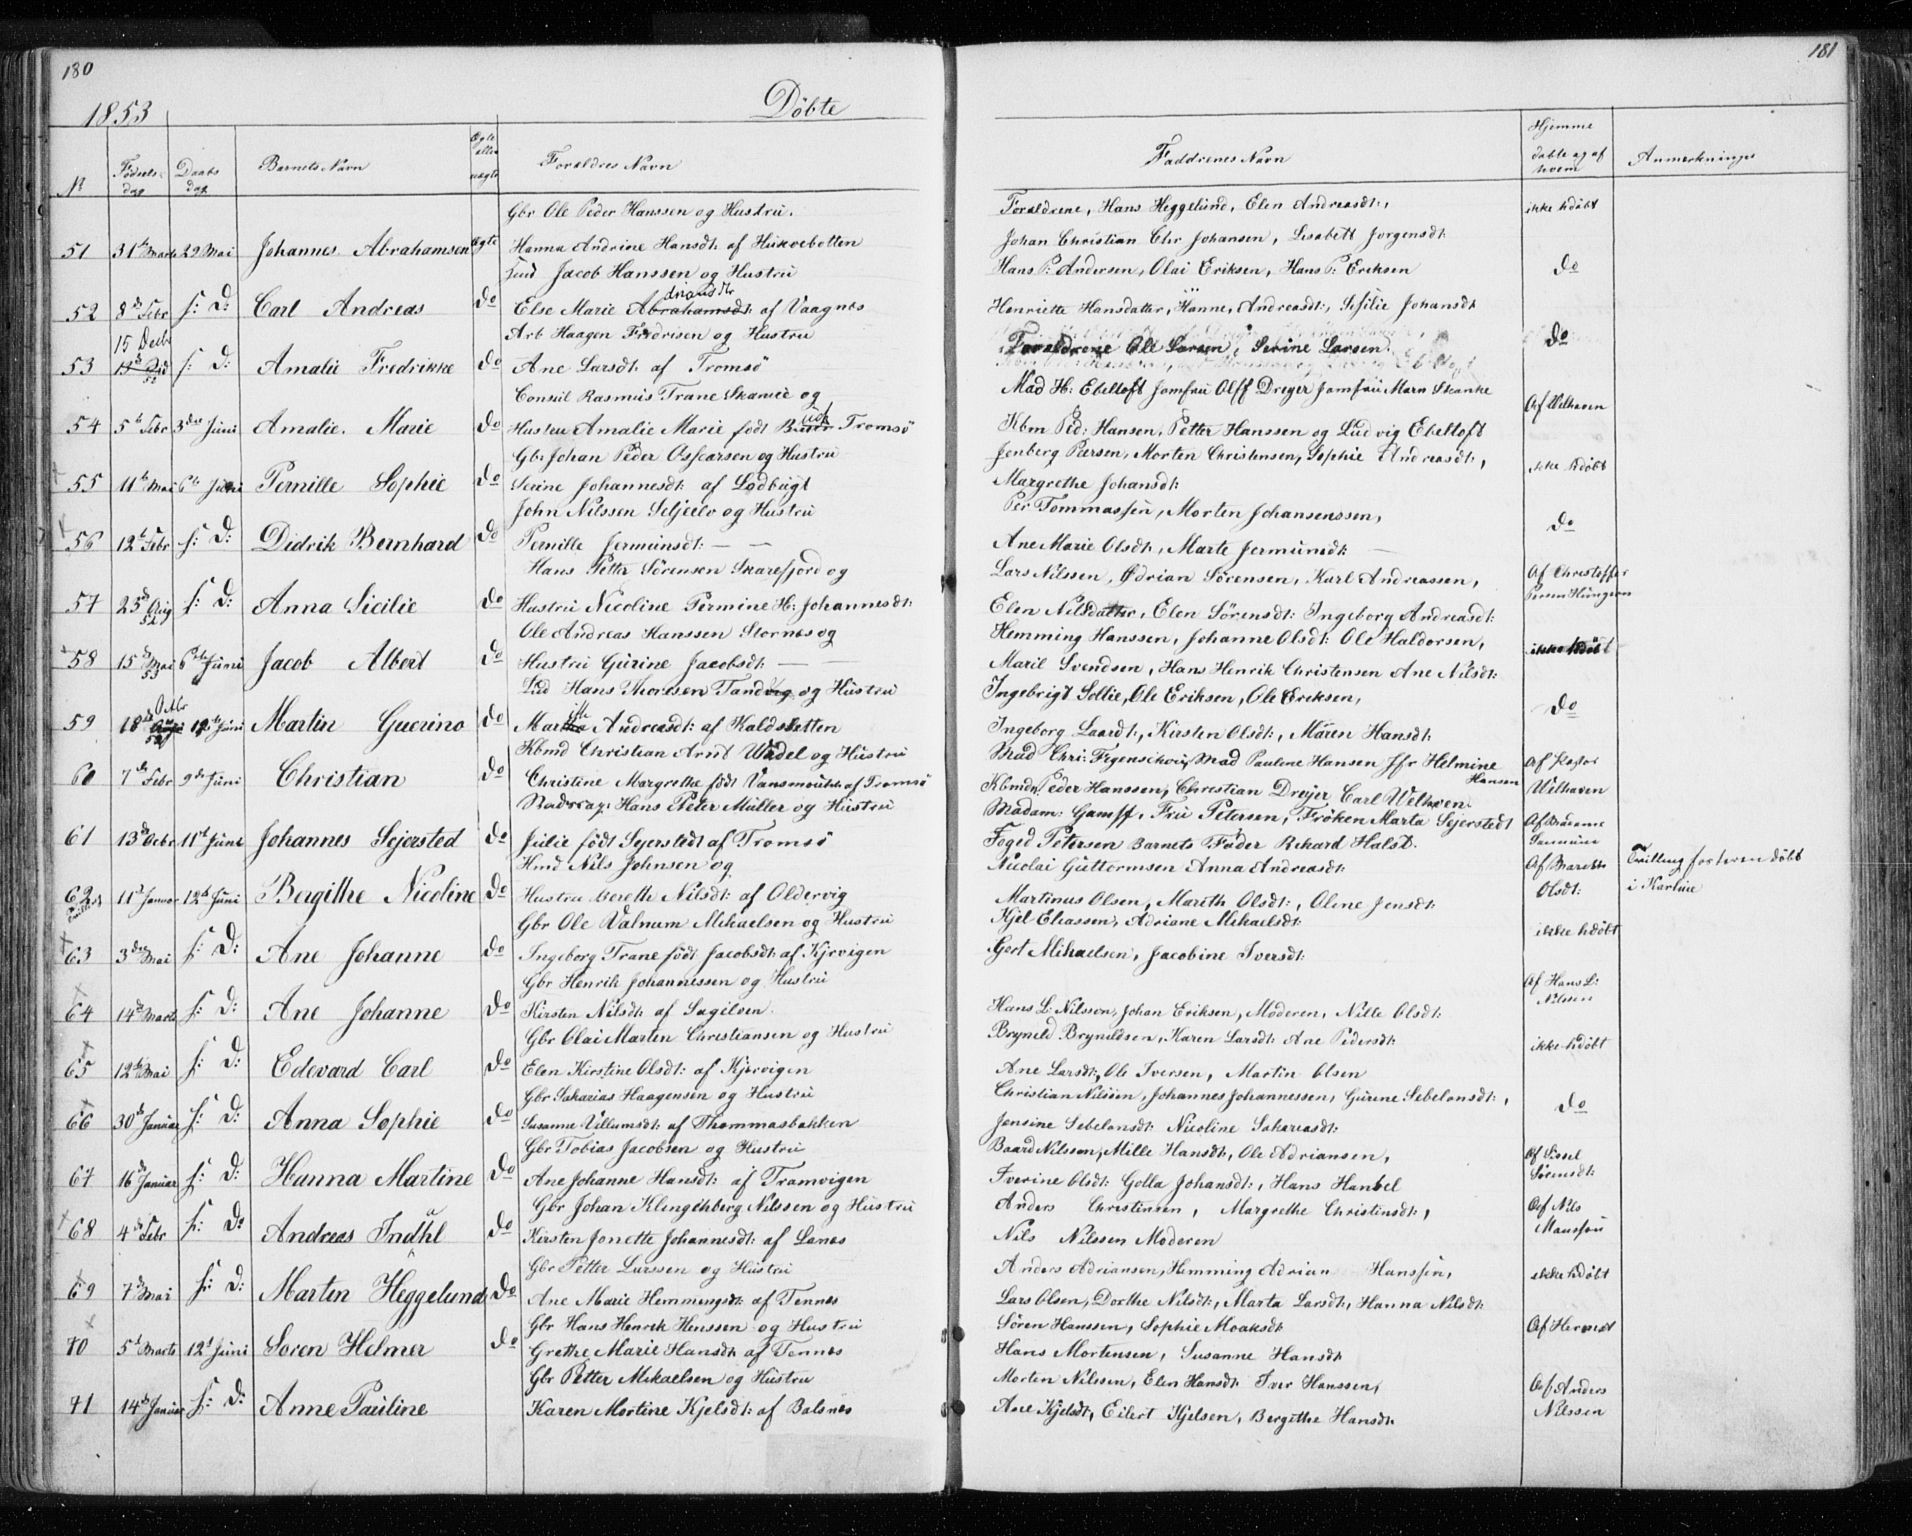 180
1853
Döbte
№ Födsels-dag Daabs dag Barnets Navn Ægte eller uægte Forældres Navn
Gbr Ole Peder Hanssen og Hustru.
51 31te Marts 29 Mai Johannes Abrahamsen Ægte Hanna Andrine Hansdt: af
Jacob Hanssen og Hustru
52 8de Febr s: D: Carl Andreas do Else Marie Abrahamsdt: af Vaagnes
Arb Haagen Fredrisen og Hustru
15 Decbr
53 52 s: D: Amalie Fredrikke do Ane Larsdt: af Tromsö
Consul Rasmus Trane Skancke og
54 5te Febr 3die Juni Amalie. Marie do Hustru Amalie Marie födt Tromsö
Gbr Johan Peder Osscarsen og Hustru
55 11te Mai 6te Juni Pernille Sophie do Serine Johannesdt: af Lodbugt
John Nilssen Seljeelv og Hustru
56 12te Febr s: D: Didrik Bernhard do Pernille Jermunsdt: — —
Hans Petter Sörensen Skarefjord og
57 23de Aug 52 s: D: Anna Sicilie do Hustru Nicoline Permine H: Johannesdt:
Ole Andreas Hanssen Stornes og
58 15de Mai 53 6te Juni Jacob Albert do Hustru Gurine Jacobsdt: — —
Hans Thoresen Tandvig og Hustru
59 18de Octbr 52 12te Juni Martin Guerino do Andreasdt: af Kaldsletten
Kbmd Christian Arnt Wadel og Hustru
60 7de Febr 9de Juni Christian do Christine Margrethe födt Vansmouth af Tromsö
Hans Peter Müller og Hustru
61 13de Octbr 11te Juni Johannes Sejersted do Julie födt Sejerstedt af Tromsö
Hmd Nils Johnsen og
62 11te Januar 12te Juni Bergithe Nicoline do Hustru Berethe Nilsdt: af Oldervig
Gbr Ole Valnum Mikaelsen og Hustru
63 3die Mai s: D: Ane Johanne do Ingeborg Trane födt Jacobsdt: af Kjrvigen
Gbr Henrik Johannessen og Hustru
64 14de Marts s: D: Ane Johanne do Kirsten Nilsdt: af Sagelven.
Gbr Olai Marten Christiansen og Hustru
65 12te Mai s: D: Edevard Carl do Elen Kirstine Olsdt: af Kjervigen
Gbr Sakarias Haagensen og Hustru
66 30de Januar s: D: Anna Sophie do Susanne Villumsdt: af Thommasbakken
Gbr Tobias Jacobsen og Hustru
67 16de Januar s: D: Hanna Martine do Ane Johanne Hansdt: af Tramvigen
Gbr Johan Klingenberg Nilssen og Hustru
68 4de Febr s: D: Andreas Indhl do Kirsten Jonette Johannesdt: af Lanes
Gbr Petter Larssen og Hustru
69 7de Mai s: D: Martin Heggelund do Ane Marie Hemmingsdt: af Tennes
Gbr Hans Henrik Henssen og Hustru
70 5te Marts 12te Juni Soren Helmer do Grethe Marie Hansdt: af Tennes
Gbr Petter Mikaelsen og Hustru
71 14de Januar s: D: Anne Pauline Karen Martine Kjelsdt: af Balsnes
181
Faddrenes Navn Hjemme döbte og af hvem Anmerkninger
Forældrene, Hans Heggelund, Elen Andreasdt:, ikke hdöbt
Johan Christian Chr Johansen, Lisabett Jorgensdt:
Hans P: Andersen, Olai Eriksen, Hans P: Eriksen do
Henriette Hansdatter, Hanne, Andreasdt:, Sesilie Johansdt
Forældrene Ole Larsen, Serine Larsen. do
Mad H: Ebeltoft Jomfru Olff Dreyer Jomfru Marn Skanke Af Welhaven
Kbm Ped: Hansen, Petter Hanssen og Ludvig Ebeltoft
Jenberg Persen, Morten Christensen, Sophie Andreasdt:, ikke hdöbt
Margrethe Johansdt:
Per Tommassen, Morten Johansenssen, do
Ane Marie Olsdt:, Marte Jermunsdt: —
Lars Nilssen, Adrian Sörensen, Karl Andreassen, Af Christoffer
Elen Nilsdatter, Elen Sörensdt: Ingeborg Andreasdt:
Hemming Hanssen, Johanne Olsdt: Ole Haldorsen, ikke hdöbt
Maril Svendsen, Hans Henrik Christensen Ane Nilsdt:
Ingebrigt Sollie, Ole Eriksen, Ole Eriksen, do
Ingeborg Laardt:, Kirsten Olsdt:, Maren Hansdt:
Mad Chri: Mad Paulene Hansen Jfr Helmine Hansen Af Pastor Welhaven
Kbmdn Peder Hanssen, Christian Dreyer Carl Welhaven
Madam: Gamst, Fru Petersen, Fröken Marta Sejerstedt
Foged Petersen Barnets Fader Rekard Halst.
Nicolai Guttormsen Anna Andreasdt: Af Marethe Olsdt: Tvilling forhen döbt i Kartnie
Martinus Olsen, Mareth Olsdt:, Oline Jensdt:
Kjel Eliassen, Adriane Mikaelsdt: ikke hdöbt
Gert Mikaelsen, Jacobine Iversdt:
Af Hans L: Nilssen
Hans L: Nilsson, Johan Eriksen, Moderen, Nille Olsdt:
Bryneld Bryneldsen, Karen Larsdt: Ane Pedersdt: ikke hdöbt
Ane Larsdt:, Ole Iversen, Martin Olsen
Christian Nilssen, Johannes Johannessen, Gurine Sebelonsdt:, do
Jensine Sebelonsdt: Nicoline Sakariasdt:
Baard Nilssen, Mille Hansdt:, Ole Adriansen, Af Sissel Sörensdt:
Iverine Olsdt: Golla Johansdt:, Hans Hansel
Anders Christensen, Margrethe Christensdt:, Af Nils
Nils Nilssen Moderen
Anders Adriansen, Hemming Adrian Hanssen, ikke hdöbt
Lars Olsen, Dorthe Nilsdt:, Marta Larsdt:, Hanna Nilsdt:
Sören Hanssen, Sophie Moaksdt
Hans Mortensen, Susanne Hansdt:
Morten Nilssen, Elen Hansdt: Iver Hanssen, Af Anders Nilssen
Ane Kjelsdt:, Eilert Kjelsen, Bergithe Hansdt: